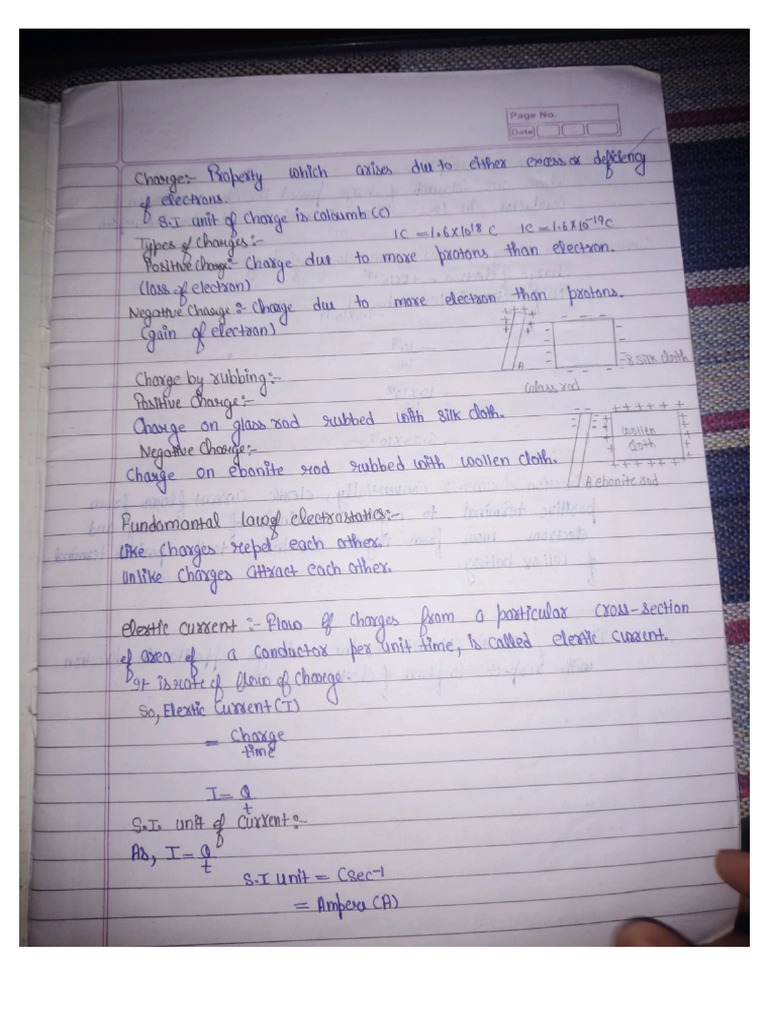 Page No.
Date
Charge:- Property which arises due to either excess or deficiency
of electrons.
S.I unit of charge is coloumb (c)
1C = 1.6X10^18 C 1C = 1.6X10^-19 C
Types of Charges:-
Positive Charge:- Charge due to more protons than electron.
(loss of electron)
Negative Charge:- Charge due to more electron than protons.
(gain of electron)
A
silk cloth
Glass rod
Charge by rubbing:-
Positive Charge:-
Charge on glass rod rubbed with silk cloth.
Negative Charge:-
Charge on ebonite rod rubbed with woollen cloth.
woollen
cloth
A ebonite rod
Fundamantal law of electrostatics:-
Like Charges repel each other.
Unlike Charges attract each other.
Elertic current:- Flow of charges from a particular cross-section
of area of a conductor per unit time, is called elertic current.
It is rate of flow of charge.
So, Elextic Current (I)
= Charge/time
I = Q/t
S.I. unit of Current:-
As, I = Q/t
S.I Unit = Csec^-1
= Ampere (A)